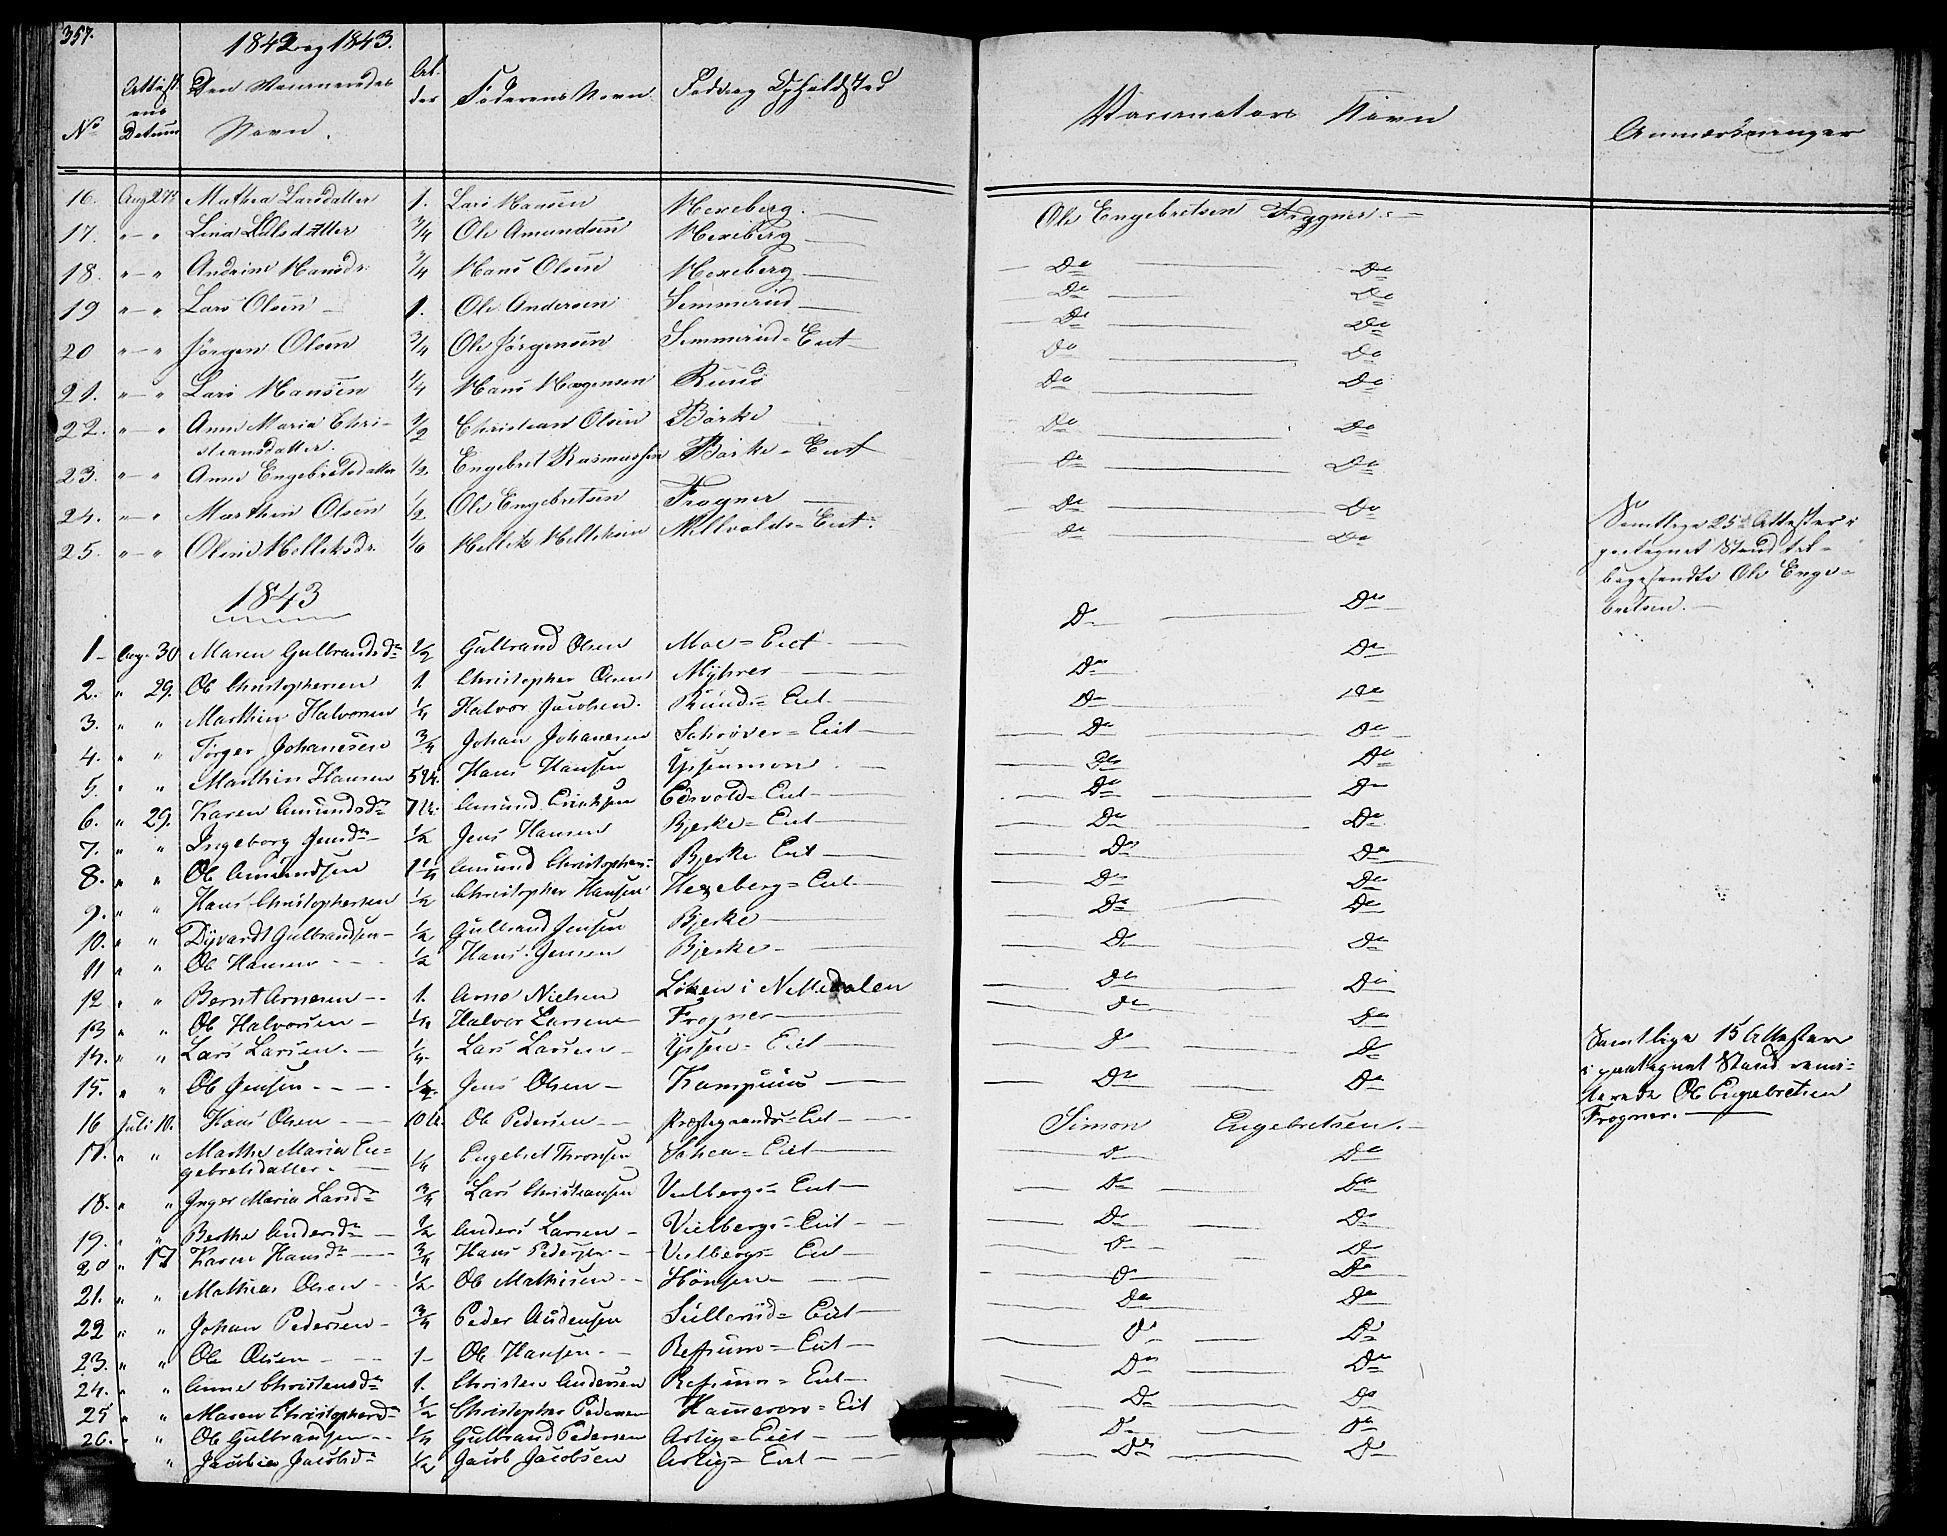 357. 1842 og 1843.
No Attest ens Datum Den Vaccineredes Navn. Al- der Faderens Navn Føde og Opholdsted Vaccinators Navn Anmærkninger
16. Aug 27de Mathea Larsdatter 1. Lars Hansen Hexeberg. Ole Engebretsen Frogner.
17. " " Lina Olsdatter 3/4 Ole Amundsen Hexeberg
18. " " Andrine Hansdr. 3/4 Hans Olsen Hexeberg Do Do
19 " " Lars Olsen 1. Ole Andersen Semmerud Do Do
20 " " Jørgen Olsen 3/4 Ole Jørgensen Semmerud-Eiet Do Do
21. " " Lars Hansen 1/4 Hans Hansen Ruud Do Do
22. " " Anne Maria Chri- 1/2 Christian Olsen Bårke Do Do
stiansdatter.
23. " " Anne Engebretsdatter 1/2 Engebret Rasmussen Bårke-Eiet Do Do
24. " " Marthin Olsen 1/2 Ole Engebretsen Frogner Do Do
25. " " Oline Helliksdr. 1/6 Hellik Helliksen Millvolds-Eiet. Do Do
Samtlige 25 Attester i
paategnet Stand til-
bagesendte Ole Enge-
bretsen.
1843
1 Aug. 30 Maren Gulbrandsdr 1/2 Gulbrand Olsen Moe-Eiet D Do
2. " 29. Ole Christophersen 1. Christopher Olsen Myhrer Do Do
3. " " Marthin Halvorsen 1/4 Halvor Jacobsen. Ruuds-Eiet. Do Do
4. " " Torger Johanesen 3/4 Johan Johanesen Schrøver-Eiet Do Do
5. " " Marthin Hansen 5 Uk. Hans Hansen Do Do
6. " 29. Karen Amundsdr 7 U. Amund Eriksen Edsvold-Eiet Do Do
7. " " Ingeborg Jensdr 1/2 Jens Hansen Bjerke-Eiet Do Do
8. " " Ole Amundsen 1 1/4 Amund Christophers- Bjerke Eiet Do Do
9. " " Hans Christophersen 1/2 Christopher Hansen Hexeberg-Eiet. Do Do
10. " " Dyvardt Gulbrandsen 1/2 Gulbrand Jensen Bjerke Do Do
11 " " Ole Hansen 1/2 Hans Jensen Bjerke Do Do
12 " " Bernt Arnesen 1. Arne Nielsen Løken i Nittedalen Do Do
13 " " Ole Halvorsen 1/4 Halvor Larsen Frogner Do Do
14. " " Lars Larsen. 1/4 Lars Larsen Ypsen-Eiet D Do
15. " " Ole Jensen 1/2 Jens Olsen Kampuus Do Do
Samtlige 15 Attester
i paategnet Stand remi-
terede Ole Engebretsen
Frogner.
16 Juli 10. Hans Olsen 10 U. Ole Pedersen Præstegaards-Eiet Simon Engebretsen.
17. " " Marthe Maria En- 1/4 Engebret Thronsen Eiet D Do
gebretsdatter.
18. " " Inger Maria Larsdr 3/4 Lars Christiansen Vielbergs-Eiet Do Do
19. " " Berthe Andersdr 1/2 Anders Larsen Vielbergs-Eiet Do Do
20 " 17 Karen Hansdr 3/4 Hans Pedersen Vielbergs-Eiet D Do
21. " " Mathias Olsen 1/2 Ole Mathisen Hønsen D Do
22 " " Johan Pedersen 3/4 Peder Audensen Sullerud-Eiet Do Do
23. " " Ole Olsen 1 Ole Hansen Refsum-Eiet D Do
24. " " Anne Christensdr 1. Christen Andersen Refsum-Eiet Do Do
25 " " Maren Christophersdr 1/2 Christopher Pedersen Hammeren-Eiet Do Do
26. " " Ole Gulbransen 1/4 Gulbrand Pedersen Aslig-Eiet Do Do
" Jacobia Jacobsdr 1/2 Jacob Jacobsen Aslig-Eiet Do Do